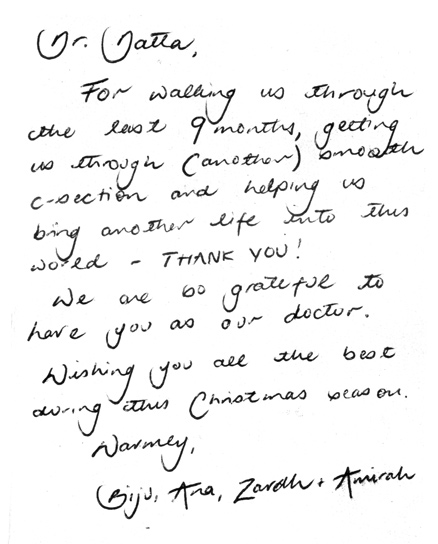 Dr. Datta,
For walking us through
the last 9 months, getting
us through (another) smooth
c-section and helping us
bring another life into this
world - THANK YOU!
We are so grateful to
have you as our doctor.
Wishing you all the best
during this Christmas season.
Warmly,
Biju, Ana, Zarah + Amirah